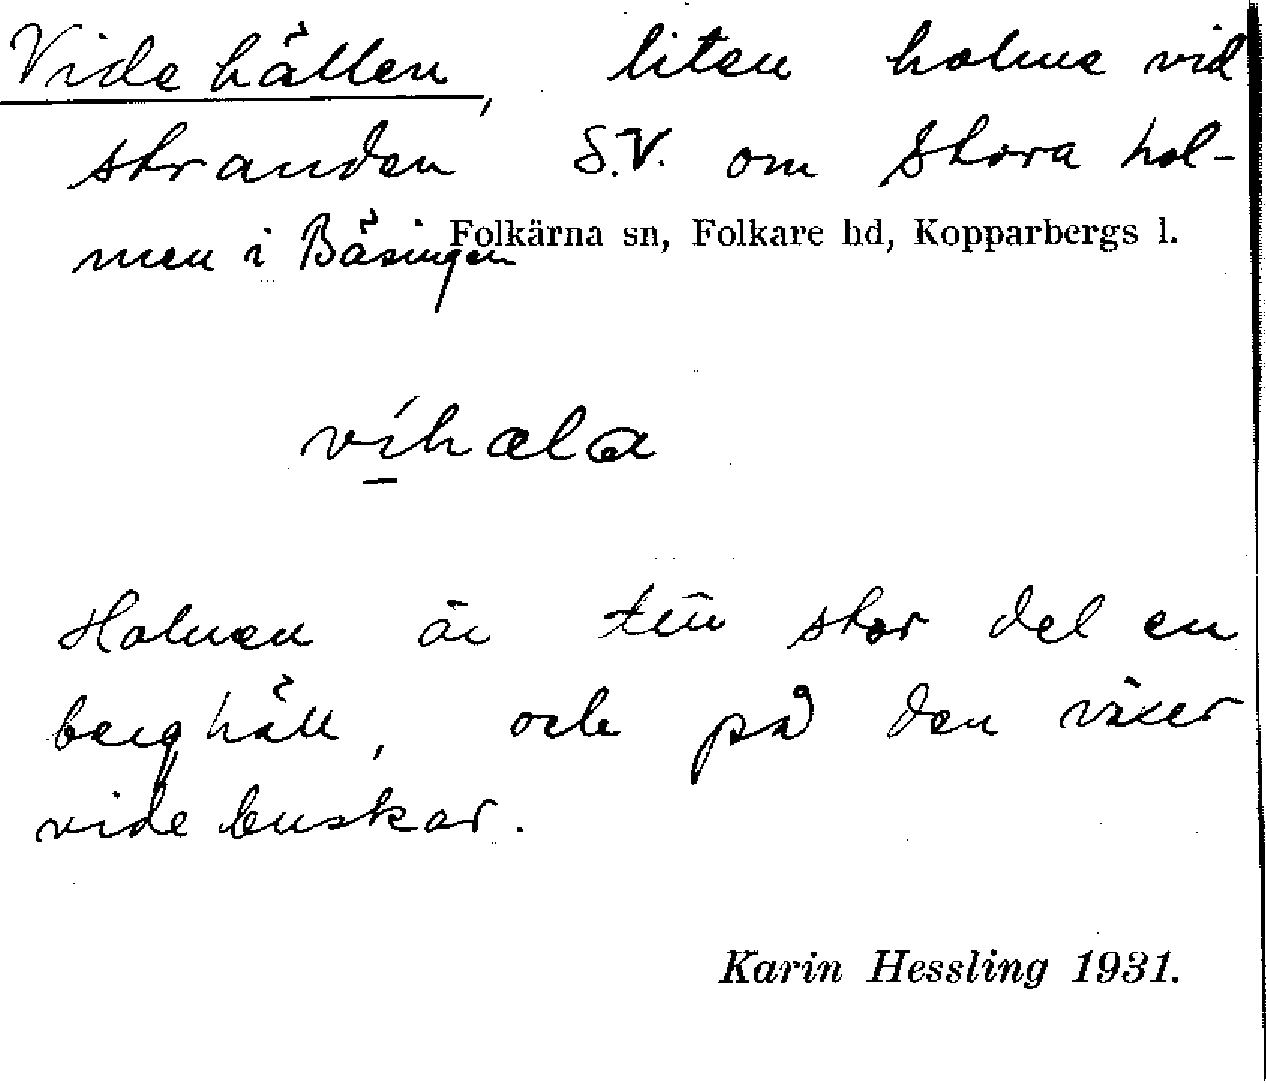 Videhällen, liten holme vid
stranden S.V. om Stora hol-
men i Bäsingen
Folkärna sn, Folkare hd, Kopparbergs l.
víhæla
Holmen är till stor del en
berghäll, och på den växer
videbuskar.
Karin Hessling 1931.